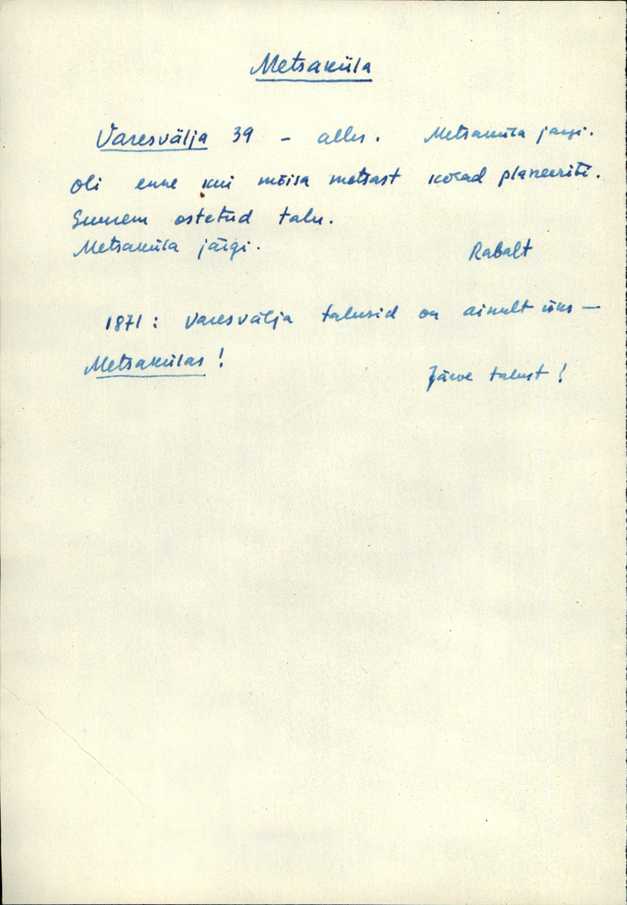 Metsaküla
Varesvälja 39 - alles. Metsaküla järgi.
oli enne kui mõisa metsast kohad planeeriti.
Summem ostetud talu.
Metsaküla järgi. Rabalt
1871: Varesvälja talusid on ainult üks -
Metsakülas! Järve talust!